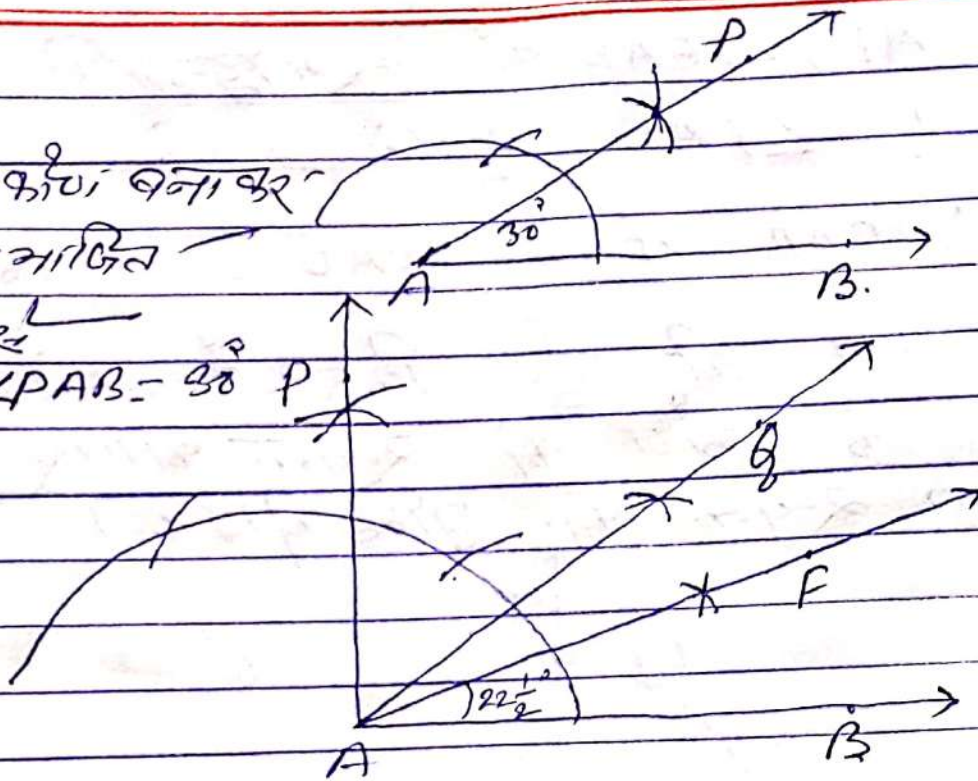 P
कोण बनाकर
30°
भाजित
A
B.
∠PAB = 30°
P
Q
F
22 1/2°
A
B